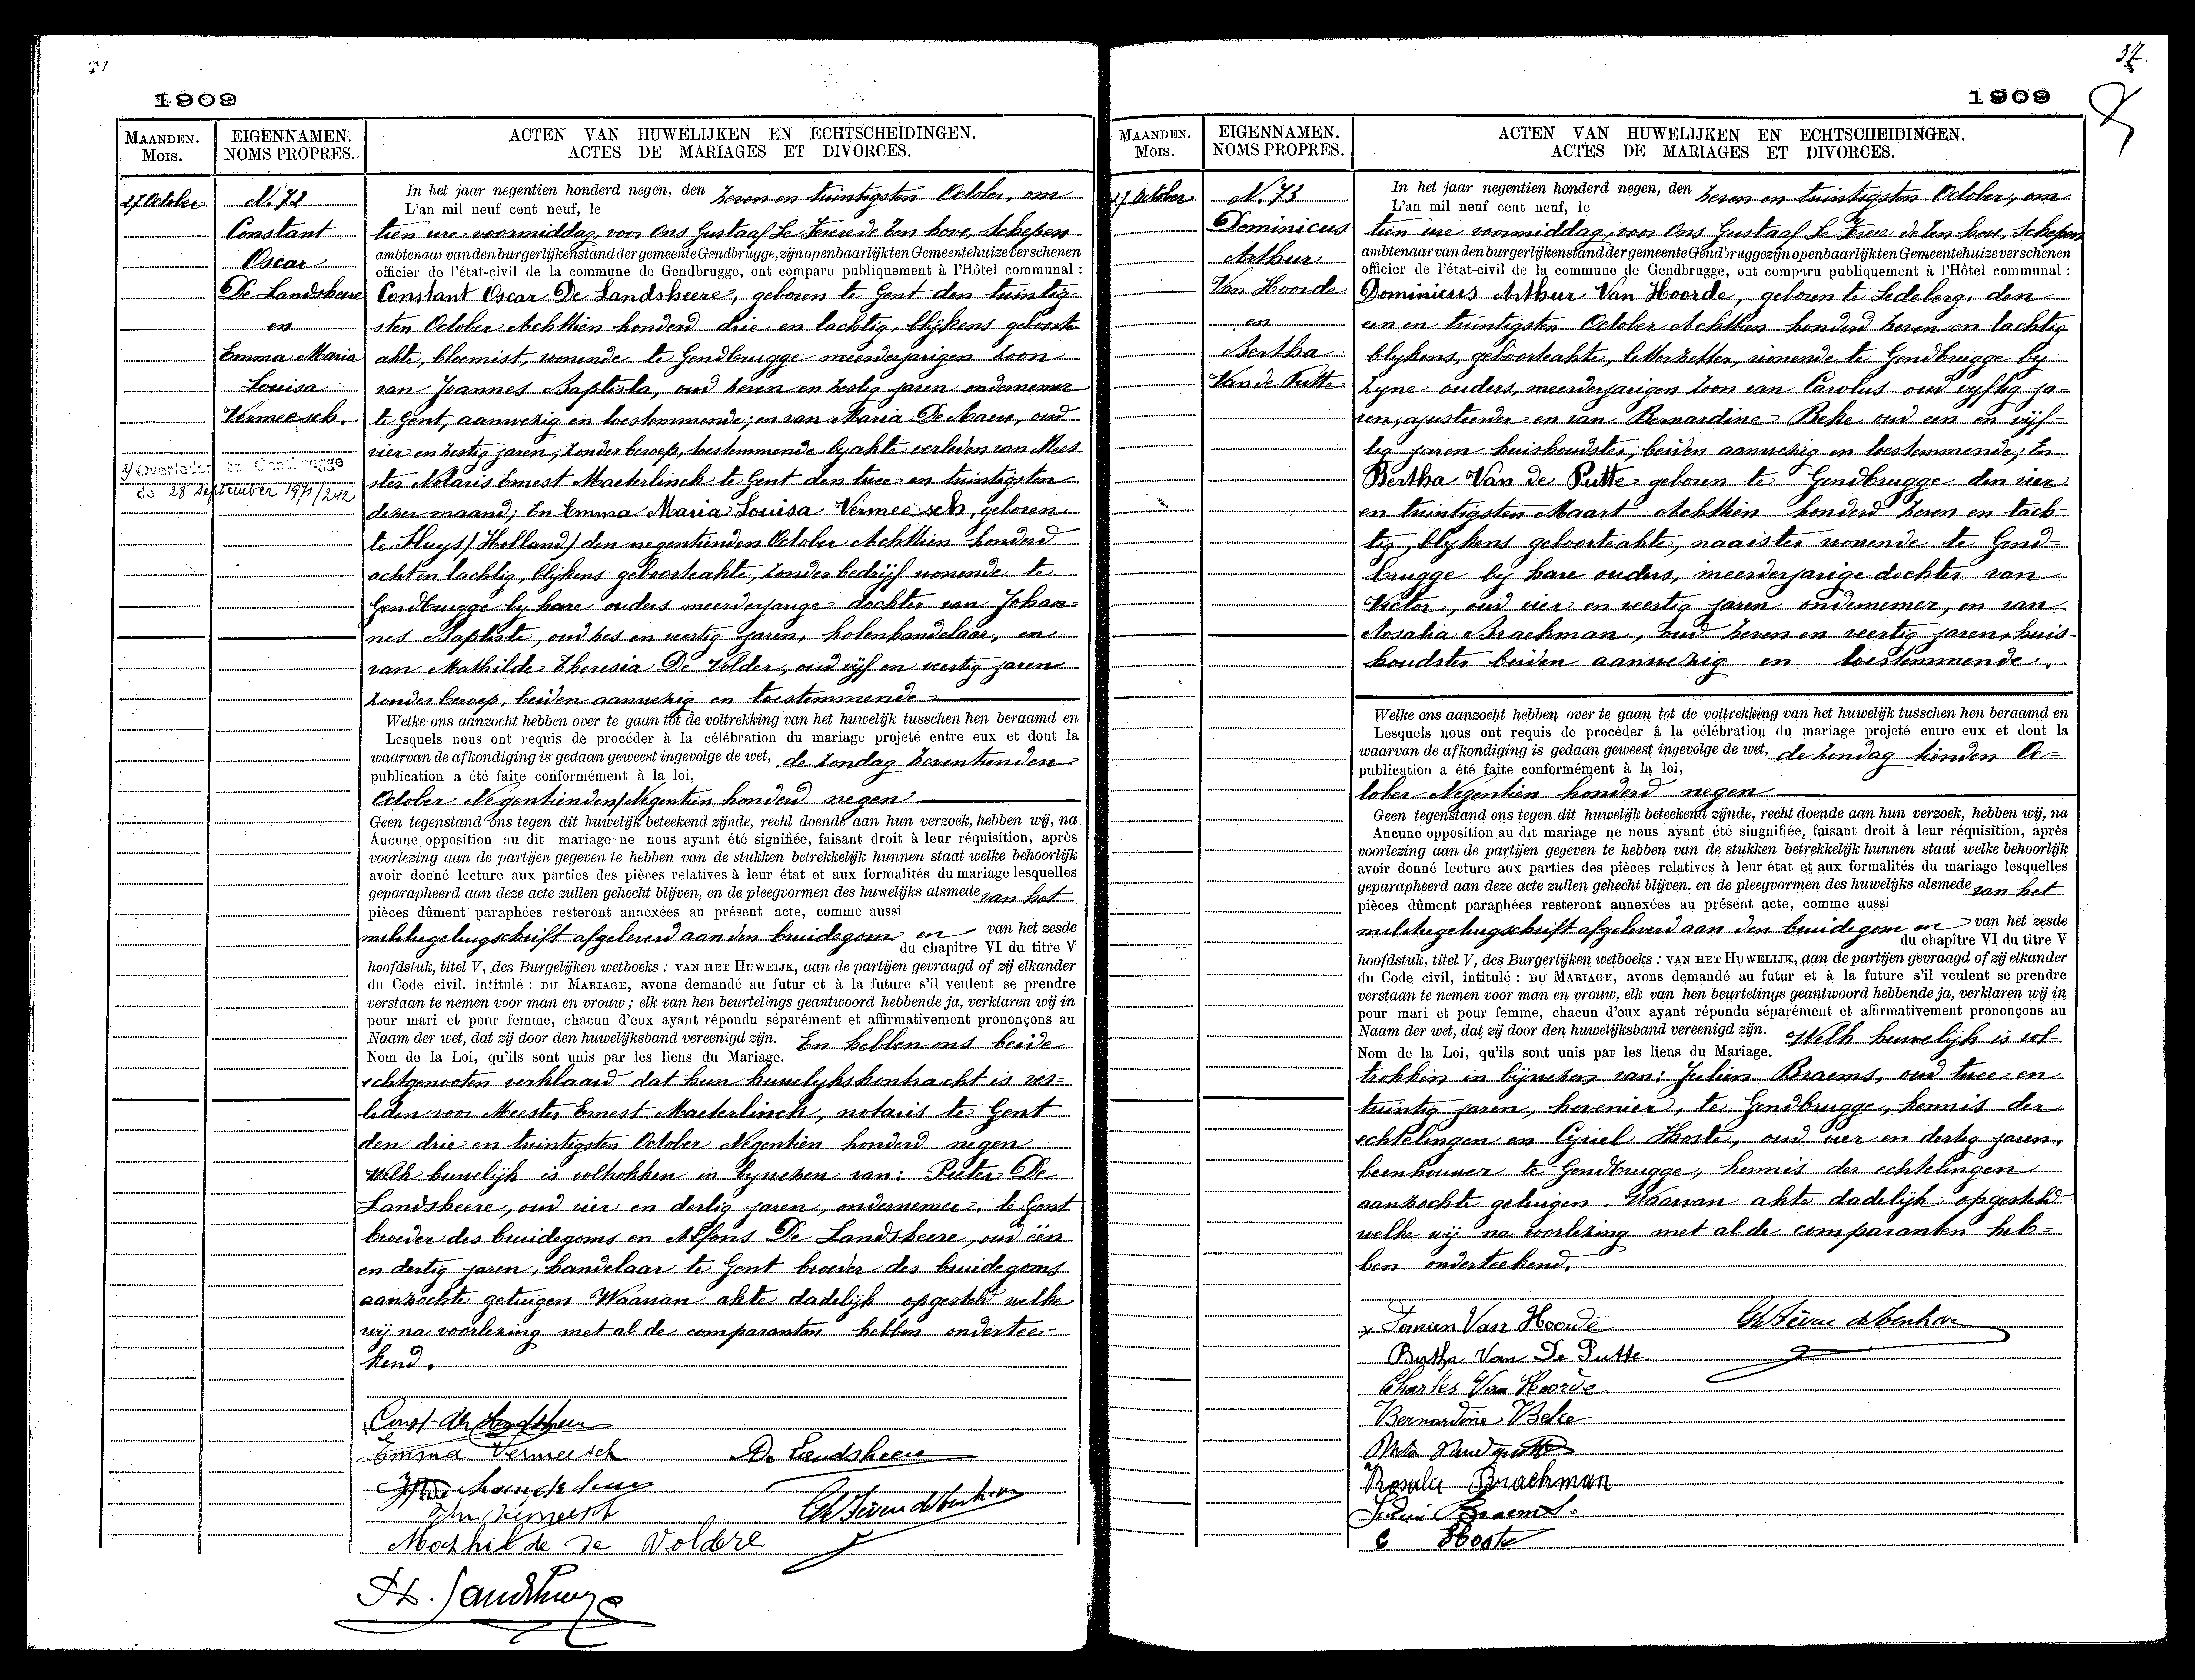 1909
MAANDEN.
Mois.
EIGENNAMEN.
NOMS PROPRES.
ACTEN VAN HUWELIJKEN EN ECHTSCHEIDINGEN.
ACTES DE MARIAGES ET DIVORCES.
27 October
N. 72
Constant
Oscar
De Landsheere
en
Emma Maria
Louisa
Vermeesch.
Overleden te Gendbrugge
de 28 september 1971/242
In het jaar negentien honderd negen, den zeven en tuintigsten October, om
L'an mil neuf cent neuf, le
tien ure voormiddag, voor Ons Gustaaf Le Fevere de Ten hove, Schepen
ambtenaar van den burgerlijken stand der gemeente Gendbrugge, zijn openbaarlijk ten Gemeentehuize verschenen
officier de l'état-civil de la commune de Gendbrugge, ont comparu publiquement à l'Hôtel communal :
Constant Oscar De Landsheere, geboren te Gent den tuintig-
sten October Achttien honderd drie en tachtig, blijkens geboorte
akte, bloemist, wonende te Gendbrugge meerderjarigen zoon
van Joannes Baptista, oud zeven en zestig jaren ondernemer
te Gent, aanwezig en toestemmende; en van Maria De Naeve, oud
vier en zestig jaren, zonder beroep, toestemmende by akte verleden van Mees-
ter Notaris Ernest Maeterlinck te Gent den twee en tuintigsten
dezer maand; En Emma Maria Louisa Vermeesch, geboren
te Sluys / Holland / den negentienden October Achttien honderd
acht en tachtig, blijkens geboorteakte, zonder bedrijf wonende te
Gendbrugge by hare ouders meerderjarige dochter van Johan=
nes Baptiste, oud zes en veertig jaren, kolenhandelaar, en
van Mathilde Theresia De Volder, oud vijf en veertig jaren
zonder beroep, beiden aanwezig en toestemmende
Welke ons aanzocht hebben over te gaan tot de voltrekking van het huwelijk tusschen hen beraamd en
Lesquels nous ont requis de procéder à la célébration du mariage projeté entre eux et dont la
waarvan de afkondiging is gedaan geweest ingevolge de wet, de zondag zeventienden
publication a été faite conformément à la loi,
October Negentienden/Negentien honderd negen
Geen tegenstand ons tegen dit huwelijk beteekend zijnde, recht doende aan hun verzoek, hebben wij, na
Aucune opposition au dit mariage ne nous ayant été signifiée, faisant droit à leur réquisition, après
voorlezing aan de partijen gegeven te hebben van de stukken betrekkelijk hunnen staat welke behoorlijk
avoir donné lecture aux parties des pièces relatives à leur état et aux formalités du mariage lesquelles
geparapheerd aan deze acte zullen gehecht blijven, en de pleegvormen des huwelijks alsmede van het
pièces dûment paraphées resteront annexées au présent acte, comme aussi
militiegetuigschrift afgeleverd aan den bruidegom en van het zesde
du chapître VI du titre V
hoofdstuk, titel V, des Burgelijken wetboeks : VAN HET HUWEIJK, aan de partijen gevraagd of zij elkander
du Code civil. intitulé : DU MARIAGE, avons demandé au futur et à la future s'il veulent se prendre
verstaan te nemen voor man en vrouw; elk van hen beurtelings geantwoord hebbende ja, verklaren wij in
pour mari et ponr femme, chacun d'eux ayant répondu séparément et affirmativement prononçons au
Naam der wet, dat zij door den huwelijksband vereenigd zijn. En hebben ons beide
Nom de la Loi, qu'ils sont unis par les liens du Mariage.
echtgenooten verklaard dat hun huwelykskontracht is ver=
leden voor Meester Ernest Maeterlinck, notaris te Gent
den drie en tuintigsten October Negentien honderd negen
Welk huwelijk is voltrokken in bywezen van: Pieter De
Landsheere, oud vier en dertig jaren, ondernemer, te Gent
broeder des bruidegoms en Alfons De Landsheere, oud één
en dertig jaren, handelaar te Gent broeder des bruidegoms
aanzochte getuigen Waarvan akte dadelijk opgesteld welke
wij na voorlezing met al de comparanten hebben ondertee-
kend.
Const. De Landsheere
Emma Vermeesch
De Landsheere
Mathilde de Voldere
37.
1909
MAANDEN.
Mois.
EIGENNAMEN.
NOMS PROPRES.
ACTEN VAN HUWELIJKEN EN ECHTSCHEIDINGEN.
ACTES DE MARIAGES ET DIVORCES.
27 October
N. 73
Dominicus
Arthur
Van Hoorde
en
Bertha
Van de Putte
In het jaar negentien honderd negen, den zeven en tuintigsten October, om
L'an mil neuf cent neuf, le
tien ure voormiddag, voor Ons Gustaaf Le Fevere de Ten hove, Schepen
ambtenaar van den burgerlijken stand der gemeente Gendbrugge zijn openbaarlijk ten Gemeentehuize verschenen
officier de l'état-civil de la commune de Gendbrugge, ont comparu publiquement à l'Hôtel communal :
Dominicus Arthur Van Hoorde, geboren te Ledeberg, den
een en tuintigsten October Achttien honderd zeven en tachtig
blykens, geboorteakte, letterzetter, wonende te Gendbrugge by
zyne ouders, meerderjarigen zoon van Carolus oud vyftig ja-
ren, ajusteerder en van Bernardine Beke oud een en vijf-
tig jaren huishoudster, beiden aanwezig en toestemmende; En
Bertha Van de Putte geboren te Gendbrugge den vier
en tuintigsten Maart Achttien honderd zeven en tach-
tig, blykens geboorteakte, naaister wonende te Gend=
brugge by hare ouders, meerderjarige dochter van
Victor, oud vier en veertig jaren ondernemer, en van
Rosalia Braekman, oud zeven en veertig jaren, huis-
houdster beiden aanwezig en toestemmende.
Welke ons aanzocht hebben over te gaan tot de voltrekking van het huwelijk tusschen hen beraamd en
Lesquels nous ont requis de procéder â la célébration du mariage projeté entre eux et dont la
waarvan de afkondiging is gedaan geweest ingevolge de wet, de zondag tienden Oc=
publication a été faite conformément à la loi,
tober Negentien honderd negen
Geen tegenstand ons tegen dit huwelijk beteekend zijnde, recht doende aan hun verzoek, hebben wij, na
Aucune opposition au dit mariage ne nous ayant été singnifiée, faisant droit à leur réquisition, après
voorlezing aan de partijen gegeven te hebben van de stukken betrekkelijk hunnen staat welke behoorlijk
avoir donné lecture aux parties des pièces relatives à leur état et aux formalités du mariage lesquelles
geparapheerd aan deze acte zullen gehecht blijven. en de pleegvormen des huwelijks alsmede van het
pièces dûment paraphées resteront annexées au présent acte, comme aussi
militiegetuigschrift afgeleverd aan den bruidegom en van het zesde
du chapître VI du titre V
hoofdstuk, titel V, des Burgerlijken wetboeks : VAN HET HUWELIJK, aan de partijen gevraagd of zij elkander
du Code civil, intitulé : DU MARIAGE, avons demandé au futur et à la future s'il veulent se prendre
verstaan te nemen voor man en vrouw, elk van hen beurtelings geantwoord hebbende ja, verklaren wij in
pour mari et pour femme, chacun d'eux ayant répondu séparément et affirmativement prononçons au
Naam der wet, dat zij door den huwelijksband vereenigd zijn. Welk huwelijk is vol-
Nom de la Loi, qu'ils sont unis par les liens du Mariage.
trokken in bijwezen van: Julien Braems, oud twee en
tuintig jaren, hovenier, te Gendbrugge, kennis der
echtelingen en Cyriel Hoste, oud vier en dertig jaren,
beenhouwer te Gendbrugge, kennis der echtelingen
aanzochte getuigen. Waarvan akte dadelijk opgesteld
welke wij na voorlezing met al de comparanten heb=
ben onderteekend.
Van Hoorde
Bertha Van De Putte
Charles Van Hoorde
Bernardine Beke
Rosalie Braekman
Braems
C Hoste